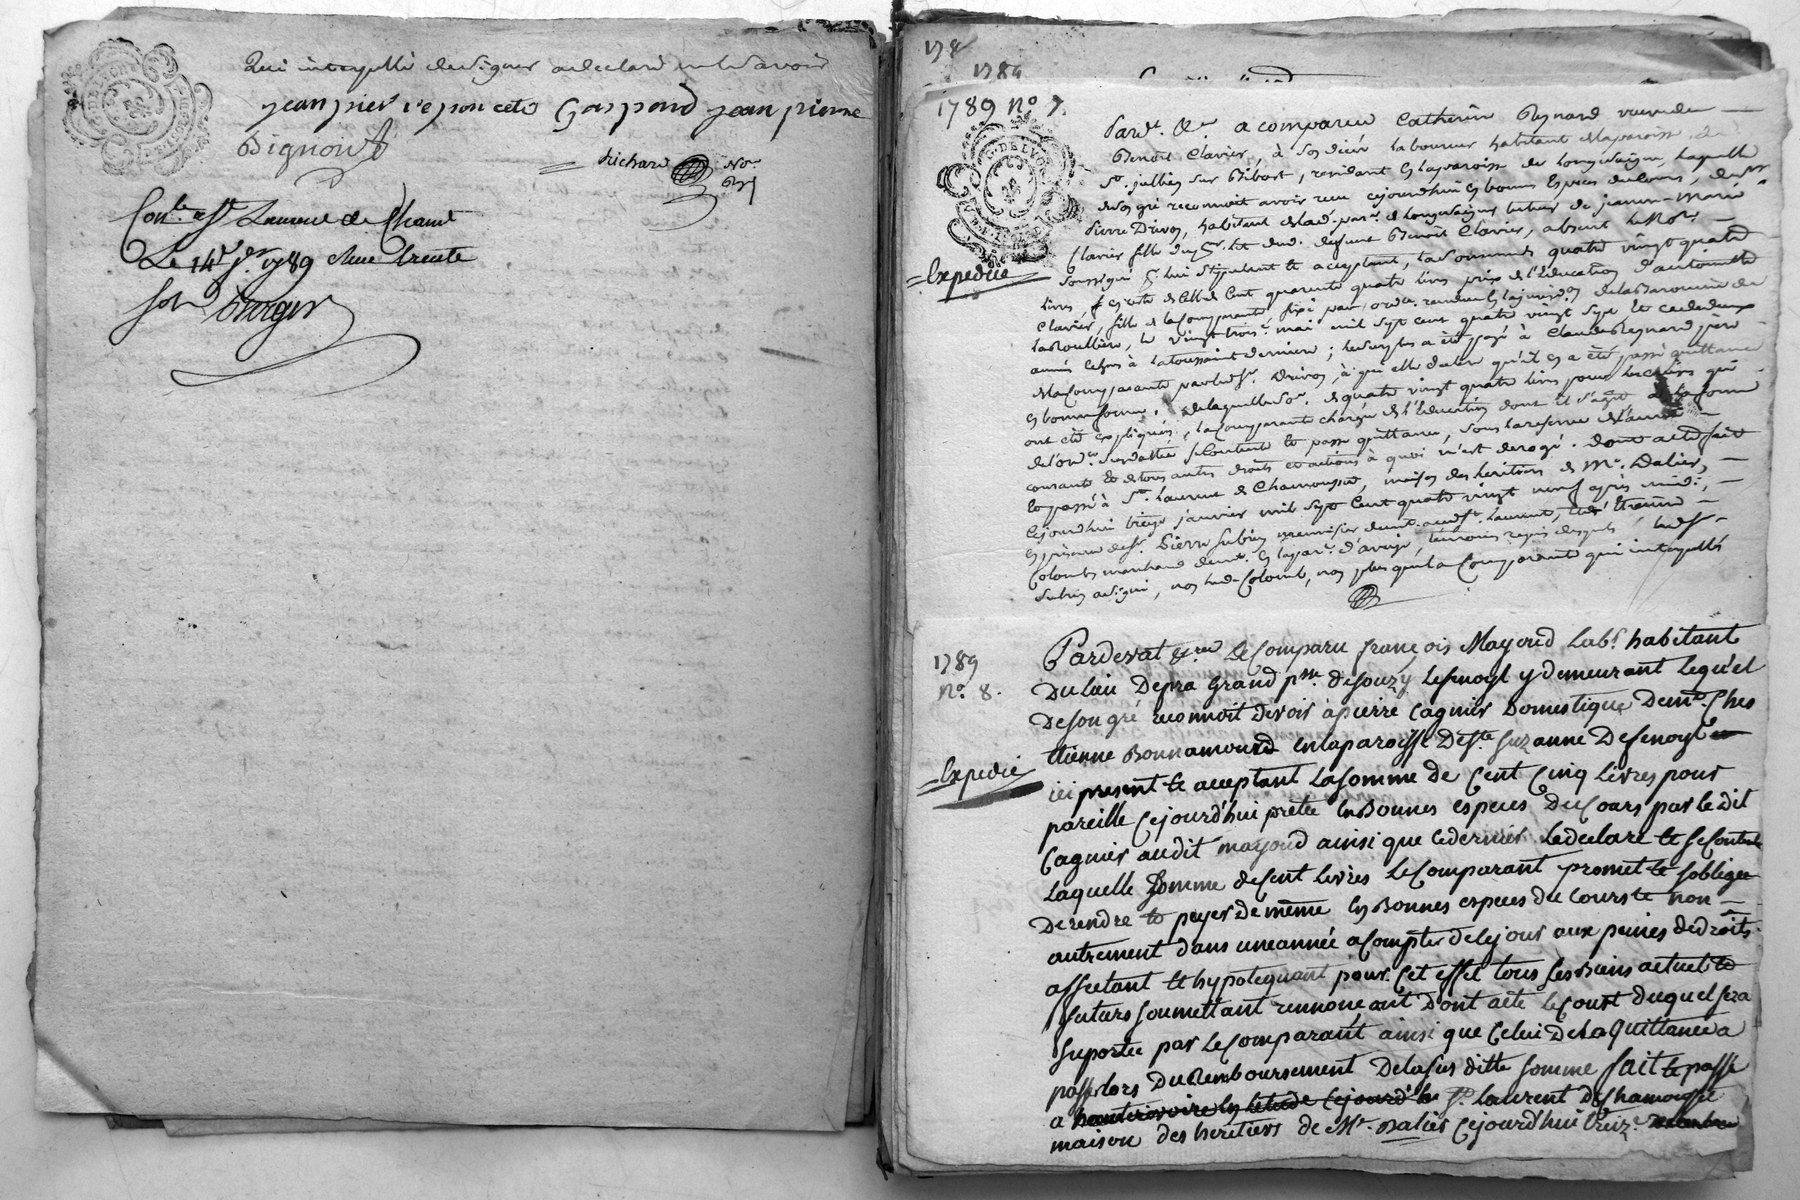 Qui interpellé de signer a declaré ne le savoir
jean pier gaspard jean pierre
Bignon
Richard No.re
Con.le a St Laurent de Cham.t
Le 14 j.er 1789 trente
sols
178
1789
1789 No. 7.
Pard.t &.re a comparu Catherine Reynard veuve de
Benoit Clavier, à son décès laboureur habitant de la paroisse de
St. jullien sur Bibost, residant en la paroisse de longessaigne, laquelle
de son gré reconnoit avoir reçu cejourdhui en bonnes especes du cours, de Sr.
pierre Drivon, habitant de lad. par.e de longessaigne tuteur de jeanne-marie
Clavier fille dud. defunt Benoit Clavier, absent le No.re
soussigné pr. lui stipulant et acceptant, la somme de quatre vingt quatre
livres, en reste de celle de cent quarante quatre livres prix de l'education d'antoinette
Clavier, fille de la comparante, fixé par ord.ce rendue en la jurisd.on de la Baronnie de
la Roulliere, le vingt trois mai mil sept cent quatre vingt sept, et ce de deux
années echues à la toussaint derniere; le surplus a été payé à Claude Reynard pere
de la comparante par led. Sr. Drivon, à qui elle declare qu'il en a été passé quittance
en bonne forme. de laquelle so.e de quatre vingt quatre livres pour les causes qui
ont été expliquées, la comparante chargée de l'education dont il s'agit, à la forme
de l'ord.ce susdattée se contente et passe quittance, sous la reserve de l'année
courante et de tous autres droits et actions à quoi n'est derogé. dont acte fait
et passé à St. Laurent de Chamousset, maison des heritiers de Mr. Dalier,
cejourdhui treize janvier mil sept cent quatre vingt neuf après midi,
en presence de Sr. Pierre Subrin menuisier demt. aud. St. Laurent, et d'Etienne
Colomb marchand demt. en la par.e d'aveize, temoins requis desquels led. Sr.
Subrin a signé, non led. Colomb, non plus que la comparante qui interpellés
=Expediée
1789
No. 8.
Pardevant &.re Le Comparu françois Mayoud lab.r habitant
Du lieu Depra grand p.sse de Souzy Lesenoyl y demeurant Lequ'el
De son gré reconnoit devoir à pierre Cagnier Domestique De m.e Ches
ttienne Bonnamourd en la paroisse De S.te Suzanne De senoyl
ici present et aceptant La somme de Cent Cinq livres pour
pareille Cejourd'hui prêtée en Bonnes especes Du Cours par le dit
Cagnier audit mayoud ainsi que ce dernier Le declare et se Contente
Laquelle somme de Cent Livres Le Comparant promet et soblige
De rendre et payer de même en Bonnes especes du Cours et non
autrement dans une année a Compter de ce jour aux peines de droits
affectant et hypotequant pour Cet effet tous ses Biens actuel et
futurs soumettant rennonceant Dont acte le Cout duquel sera
suportée par Le Comparant ainsi que Celui De la Quittance a
passer lors Du Remboursement De la sus ditte somme fait et passé
a St. Laurent De Chamousset
maison des heritiers de Mr. Dalier Cejourdhui treize
=Expedié